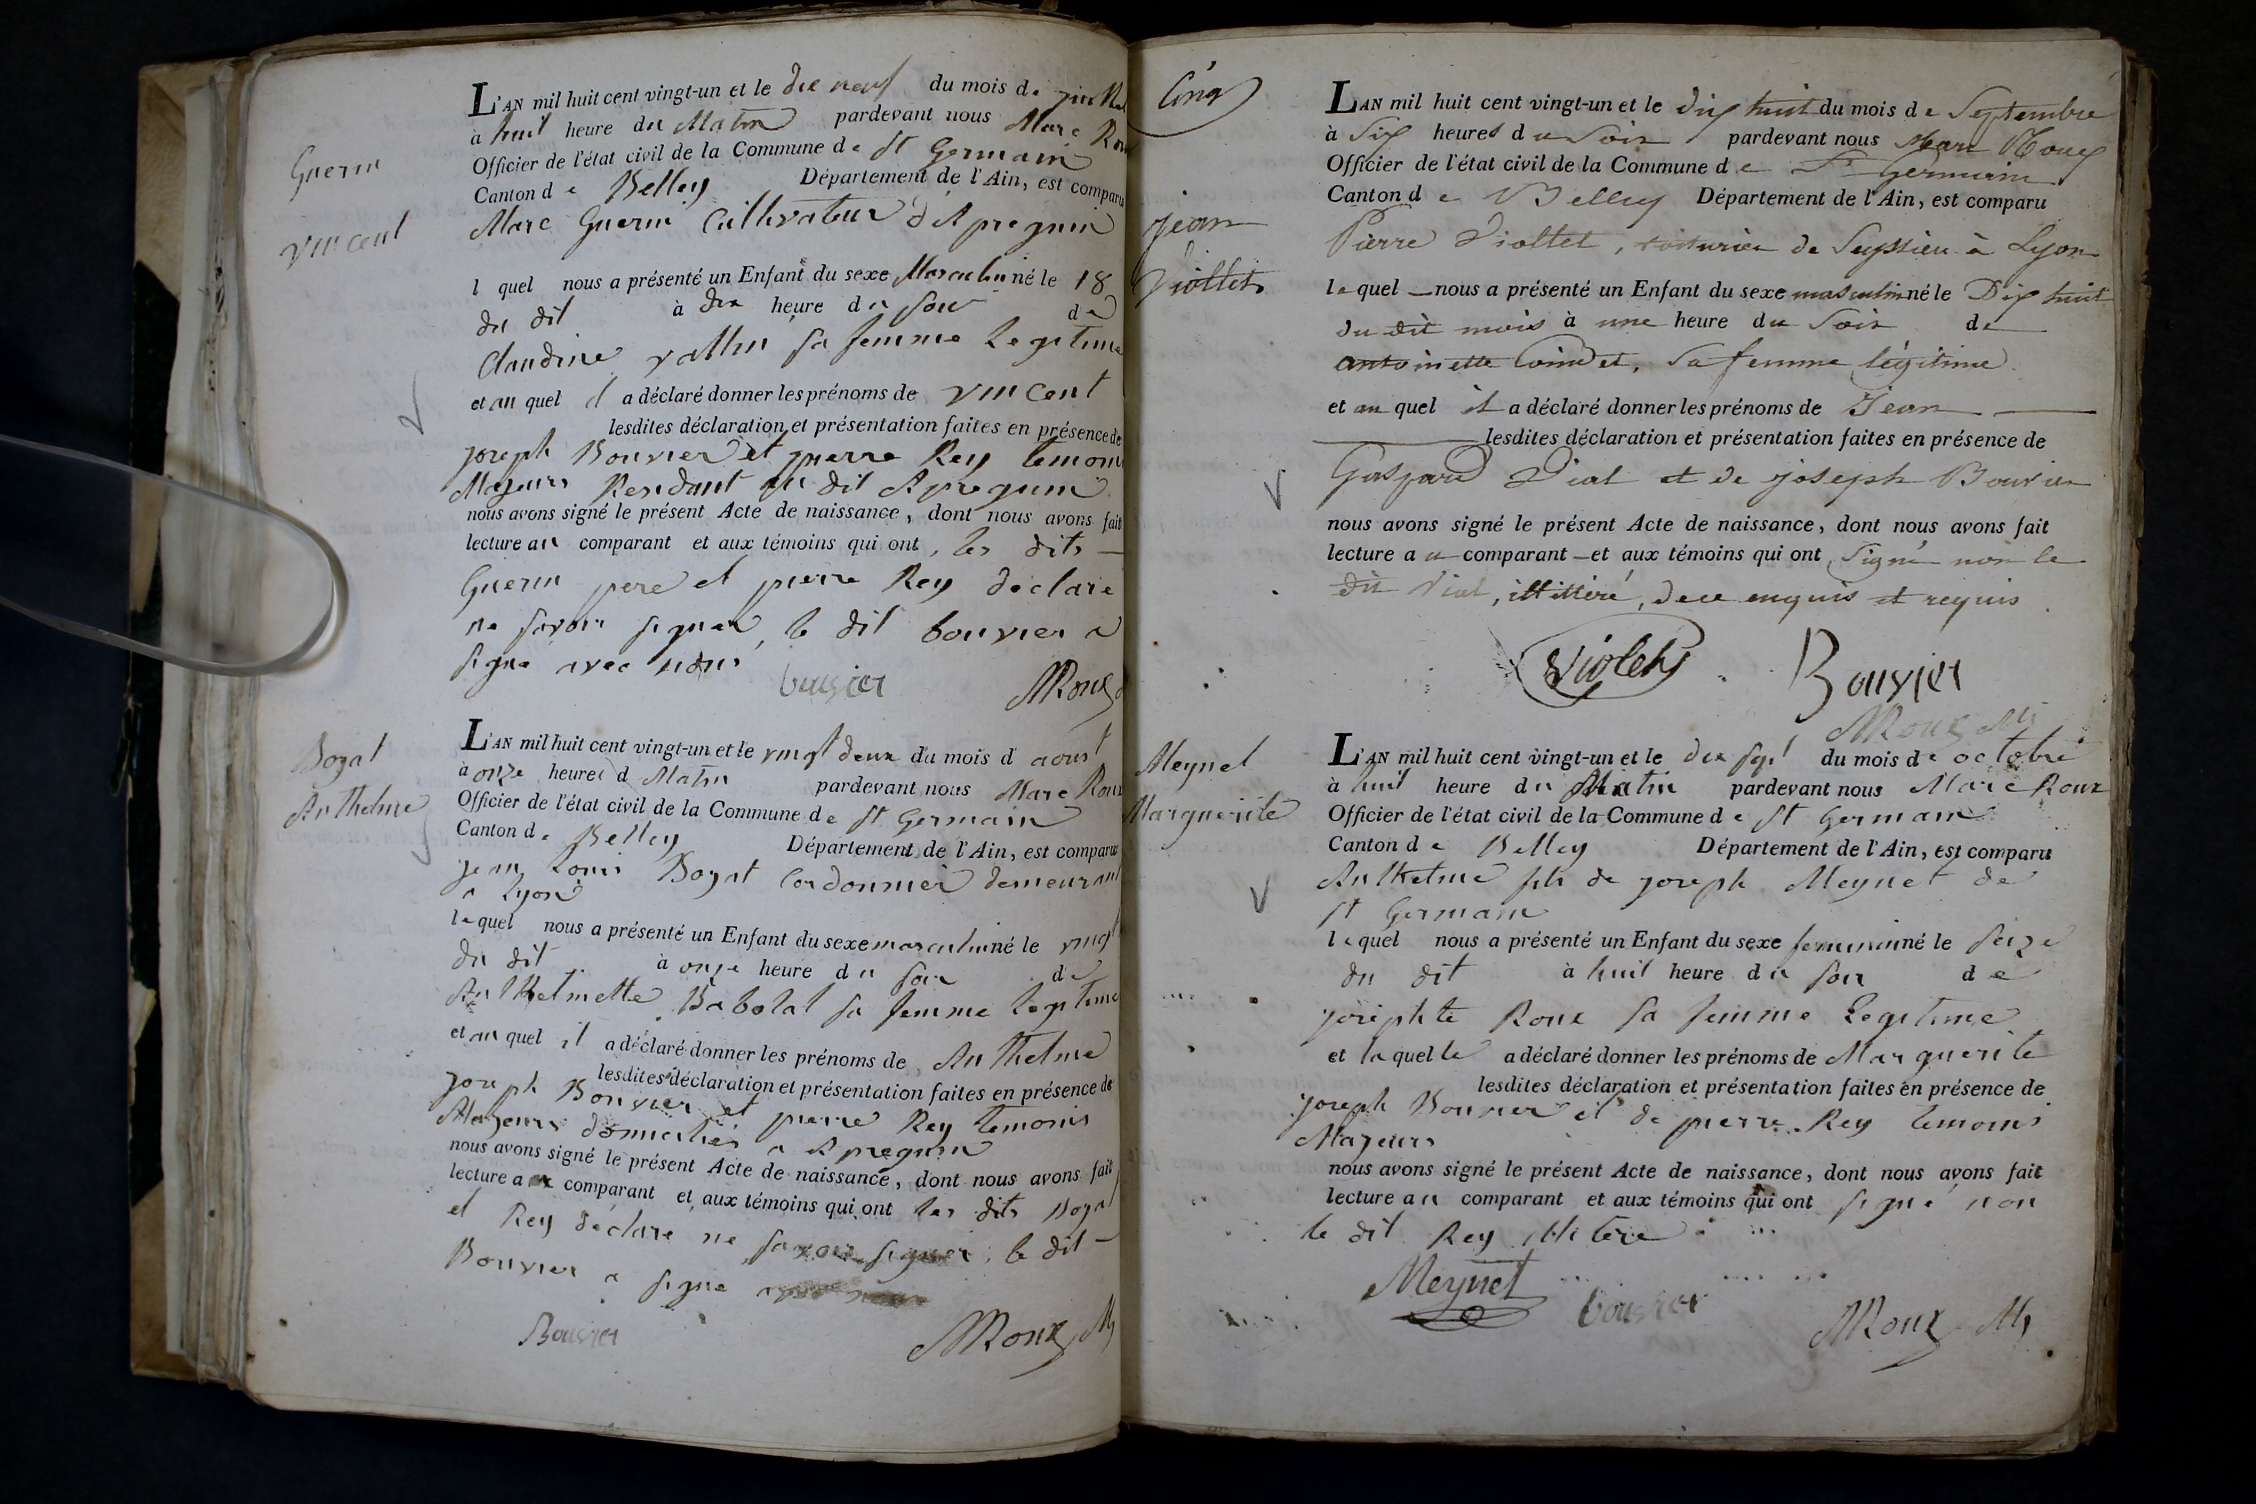 Guerin
Vincent
L'AN mil huit cent vingt-un et le dix neuf du mois de juillet
à huit heure du Matin pardevant nous Marc Roux
Officier de l'état civil de la Commune de St Germain
Canton de Belley Département de l'Ain, est comparu
Marc Guerin Cultivateur d'Apregnin
l quel nous a présenté un Enfant du sexe Masculin né le 18
du dit à dix heure du soir de
Claudine vallin sa femme Legitime
et au quel il a déclaré donner les prénoms de Vincent
lesdites déclaration et présentation faites en présence de
joseph Bouvier et pierre Rey temoins
Majeurs Residant au dit Apregnin
nous avons signé le présent Acte de naissance, dont nous avons fait
lecture au comparant et aux témoins qui ont, les dits
Guerin pere et pierre Rey déclaré
ne savoir signer, le dit bouvier a
signé avec nous
bouvier MRoux
Bogat
Anthelme
L'AN mil huit cent vingt-un et le vingt deux du mois d aoust
à onze heures d Matin pardevant nous Marc Roux
Officier de l'état civil de la Commune de St Germain
Canton de Belley Département de l'Ain, est comparu
jean Louis Bogat Cordonnier demeurant
a Lyon
lequel nous a présenté un Enfant du sexe masculin né le vingt
du dit à onze heure du soir de
Anthelmette Babolat sa femme legitime
et au quel il a déclaré donner les prénoms de Anthelme
lesdites déclaration et présentation faites en présence de
joseph Bouvier et pierre Rey temoins
Majeurs domiciliés a Apregnin
nous avons signé le présent Acte de naissance, dont nous avons fait
lecture au comparant et aux témoins qui ont les dits Bogat
et Rey déclaré ne savoir signer, le dit
Bouvier a signé avec nous
Bouvier MRoux Mr
Cinq
jean
Viollet
L'AN mil huit cent vingt-un et le dix huit du mois de Septembre
à Six heures du Soir pardevant nous Marc Roux
Officier de l'état civil de la Commune de St Germain
Canton de Belley Département de l'Ain, est comparu
Pierre Viollet, voiturier de Seyssieu à Lyon
lequel nous a présenté un Enfant du sexe masculin né le Dix huit
du dit mois à une heure du Soir de
antoinette Coindet, Sa femme légitime
et au quel il a déclaré donner les prénoms de Jean
lesdites déclaration et présentation faites en présence de
Gaspard Vial et de joseph Bouvier
nous avons signé le présent Acte de naissance, dont nous avons fait
lecture au comparant et aux témoins qui ont Signé non le
dit Vial, illitéré, de ce enquis et requis
Violet Bouvier
MRoux Mr
Meynet
Marguerite
L'AN mil huit cent vingt-un et le dix sept du mois de octobre
à huit heure du Matin pardevant nous Marc Roux
Officier de l'état civil de la Commune de St Germain
Canton de Belley Département de l'Ain, est comparu
Anthelme fils de joseph Meynet de
St Germain
lequel nous a présenté un Enfant du sexe feminin né le seize
du dit à huit heure du soir de
josephte Roux sa femme Legitime
et laquelle a déclaré donner les prénoms de Marguerite
lesdites déclaration et présentation faites en présence de
joseph Bouvier et de pierre Rey temoins
Majeurs
nous avons signé le présent Acte de naissance, dont nous avons fait
lecture au comparant et aux témoins qui ont signé non
le dit Rey illiteré
Meynet bouvier MRoux Mr